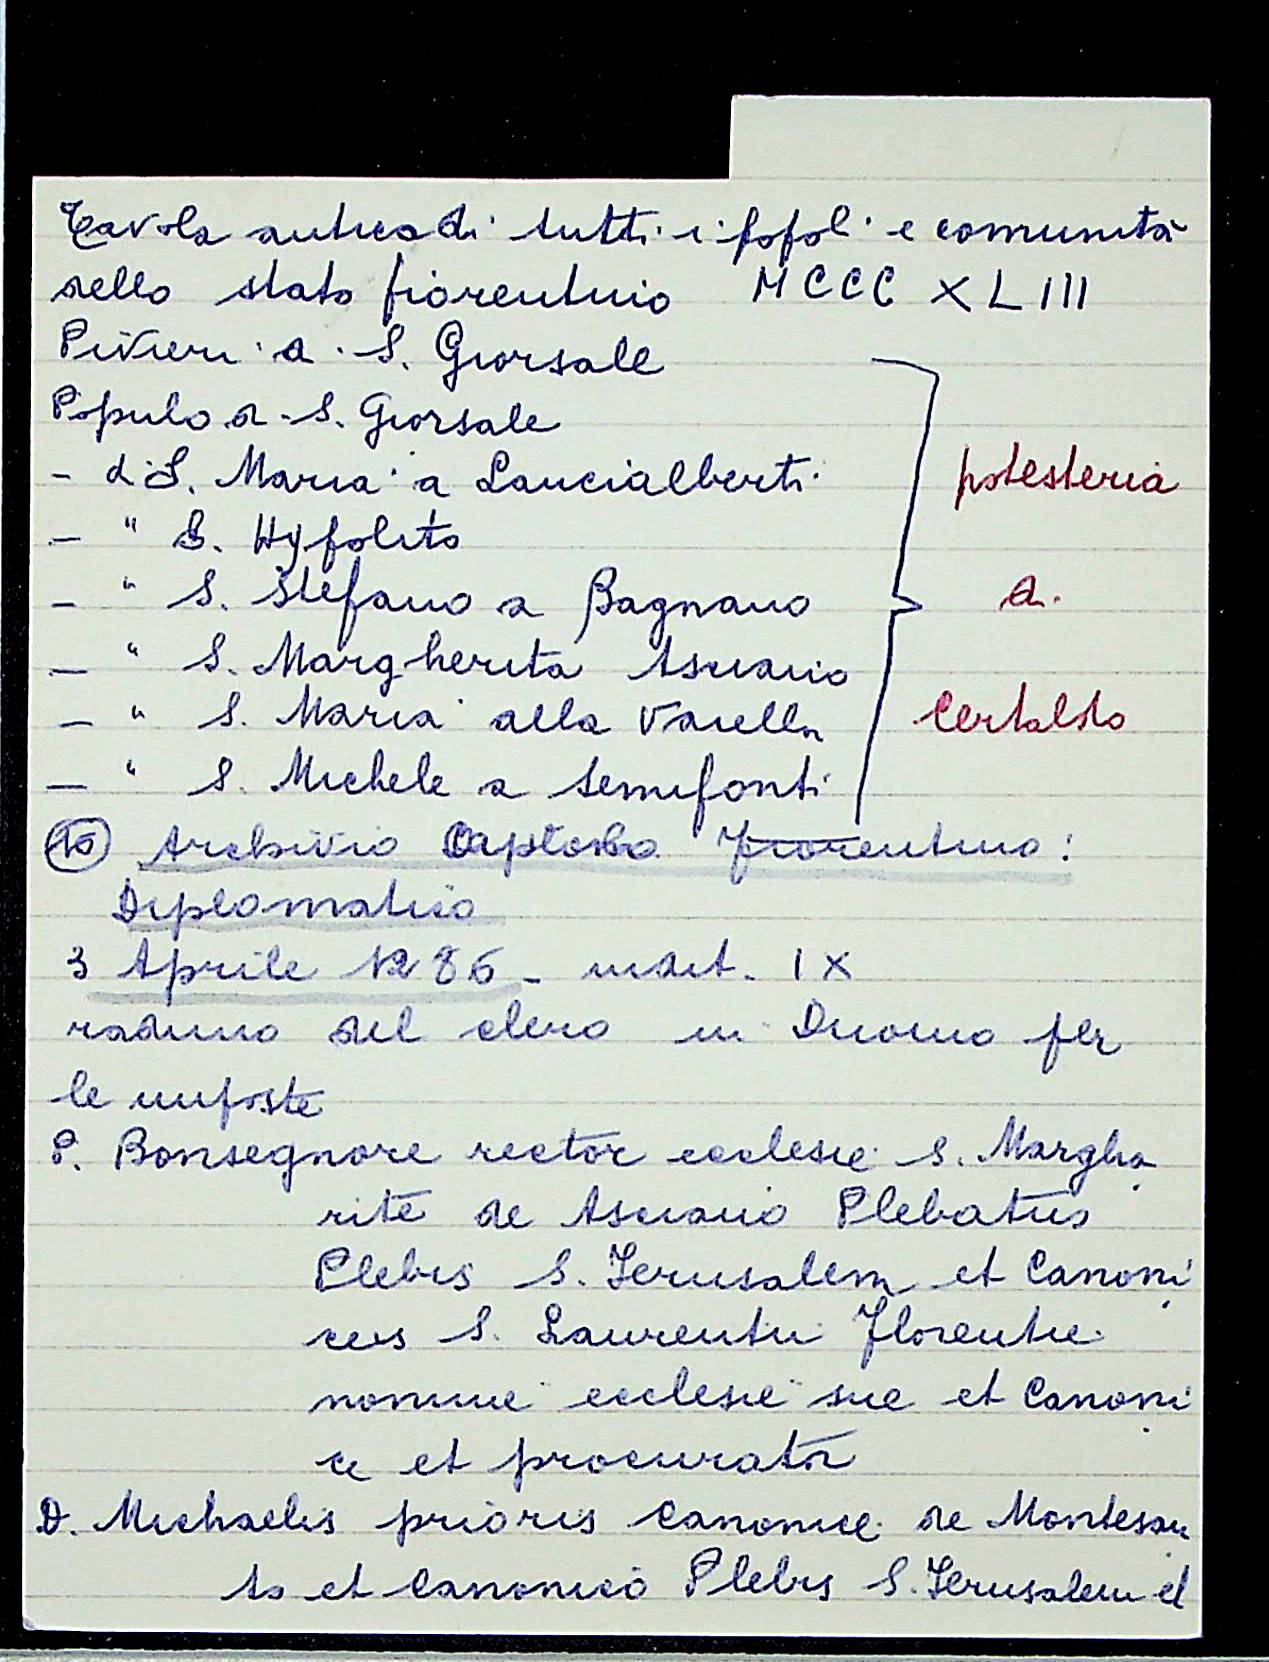 Tavola antica di tutti i popoli e comunità
dello stato fiorentino MCCCXLIII
Pivieri di S. Giersale
Populo di S. Giersale
- di S. Maria a Lancialberti
- " S. Hypolito
- " S. Stefano a Bagnano
- " S. Margherita Asciano
- " S. Maria alla Vaiella
- " S. Michele a Semifonti
potesteria
di
Certaldo
Archivio Capitolo Fiorentino:
Diplomatico
3 Aprile 1286 - indit. IX
raduno del clero in Duomo per
le imposte
P. Bonsegnore rector ecclesie S. Margha
rite de Asciano Plebatus
Plebis S. Jerusalem et Canoni
cus S. Laurentii Florentie
nomine ecclesie sue et Canoni
ce et procurator
D. Michaelis prioris canonice de Montesan
to et Canonico Plebis S. Jerusalem et